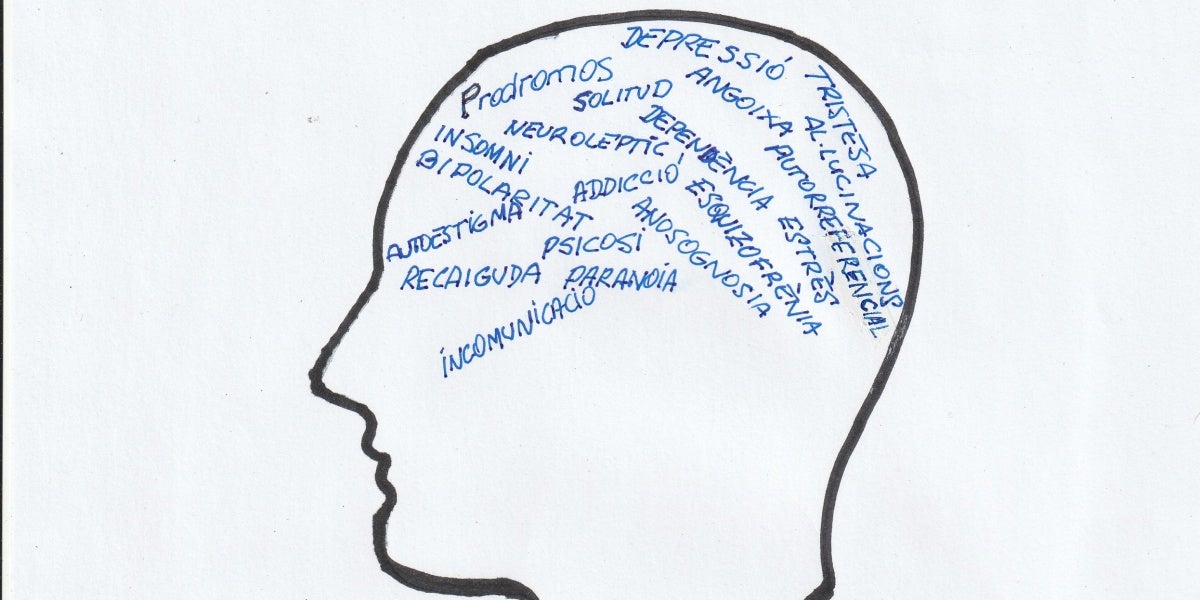 DEPRESSIÓ
Prodromos
SOLITUD
ANGOIXA
TRISTESA
INSOMNI
NEUROLEPTIC
DEPENDÈNCIA
AL.LUCINACIONS
BIPOLARITAT
ADDICCIÓ
AUTORREFERENCIAL
AUTOESTIGMA
PSICOSI
ANOSOGNOSIA
ESQUIZOFRÈNIA
ESTRÈS
RECAIGUDA
PARANOIA
INCOMUNICACIÓ